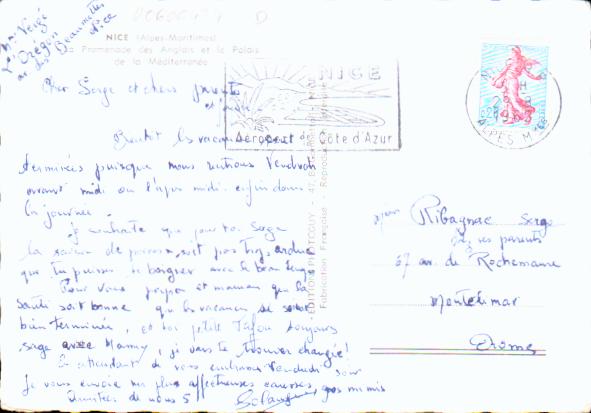 NICE (Alpes-Maritimes)
La Promenade des Anglais et le Palais
de la Méditerranée
Mme Vergé
L'Orégon
av des Baumettes
Nice
NICE
Aéroport de Côte d'Azur
ALPES Mmes
EDITIONS PHOTOGUY - 47,
Fabrication Française - Reproduction
Cher Serge et chers parents
Bientôt les vacances
terminées puisque nous rentrons Vendredi
avant midi ou l'après midi enfin dans
la journée.
Je souhaite que pour toi Serge
la saison de soit pas trop ardue
que tu puisses te baigner avec le beau temps
Pour vous papa et maman que la
santé soit bonne que les vacances se soient
bien terminées, et toi petite toujours
sage avec Mamy, je vais te trouver changée!
En attendant de vous embrasser Vendredi soir
Je vous envoie mes plus affectueuses caresses, gros mimis
de nous 5
Ribagnac Serge
chez ses parents
67 av. de Rochemaure
Montélimar
Drôme